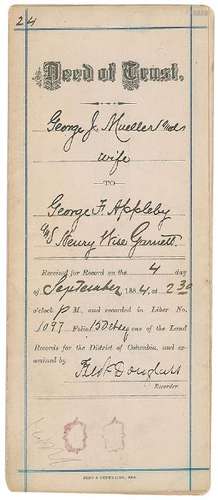 24
Deed of Trust,
George J. Mueller
wife
TO
George F. Appleby
Henry Wise Garnett
Received for Record on the 4 day
of September 1884, at 2 30
o'clock P M., and recorded in Liber No.
1097 Folio 15 one of the Land
Records for the District of Columbia, and ex-
amined by
Fredk Douglass
Recorder.